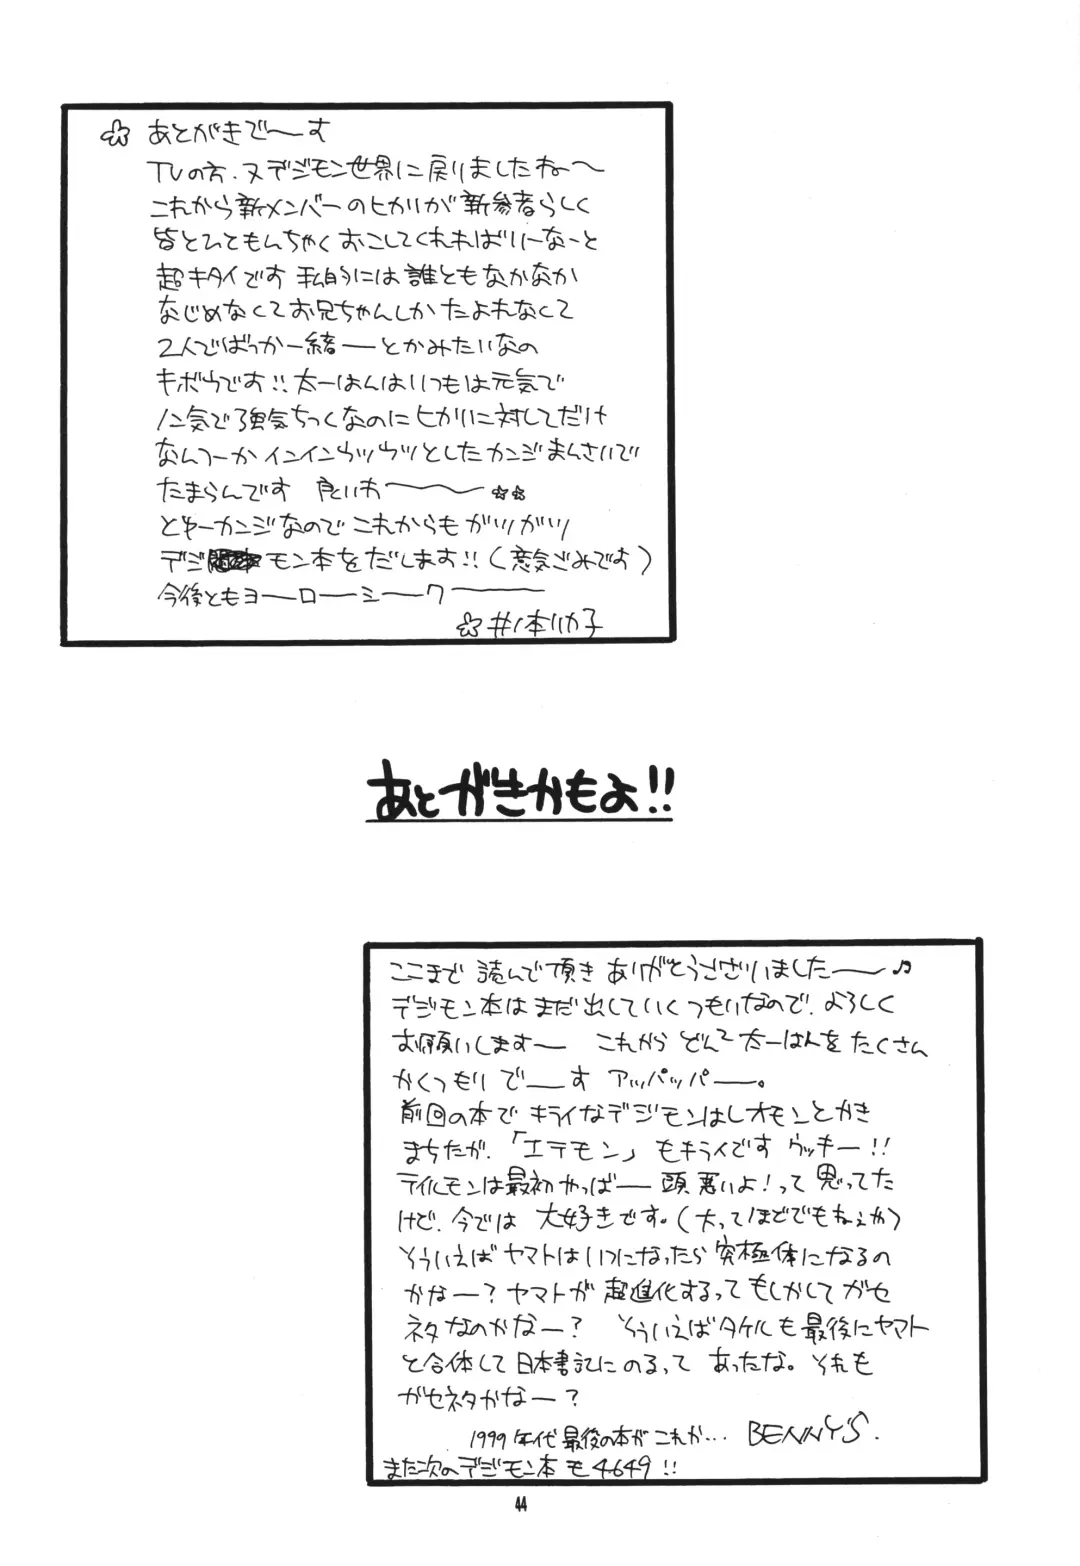 ☆ あとがきで〜す
TVの方、又デジモン世界に戻りましたね〜
これから新メンバーのヒカリが新参者らしく
皆とひともんちゃくおこしてくれればいーなーと
超キタイです 私的には誰ともなかなか
なじめなくてお兄ちゃんしかたよれなくて
2人でばっか一緒――とかみたいなの
キボウです!! 太一はんはいつもは元気で
ノン気で強気ちっくなのにヒカリに対してだけ
なんつーかインインウツウツとしたカンジまんさいで
たまらんです 良いわ〜〜〜 ☆☆
とゆーカンジなのでこれからもガツガツ
デジモン本をだします!!(意気ごみです)
今後ともヨーローシークー
☆井ノ本リカ子
あとがきかもよ!!
ここまで読んで頂きありがとうございました――♫
デジモン本はまだ出していくつもりなので、よろしく
お願いします〜 これからどんどん太一はんをたくさん
かくつもりでーす アッパッパー。
前回の本でキライなデジモンはレオモンとかき
まちたが、「エテモン」もキライです ウッキー!!
テイルモンは最初やっばー頭悪いよ!って思ってた
けど、今では大好きです。(大ってほどでもねぇか)
そういえばヤマトはいつになったら究極体になるの
かなー?ヤマトが超進化するってもしかしてガセ
ネタなのかなー? そういえばタケルも最後にヤマト
と合体して日本書記にのるってあったな。それも
ガセネタかなー?
1999年代最後の本がこれか… BENNY'S.
また次のデジモン本も4649!!
44